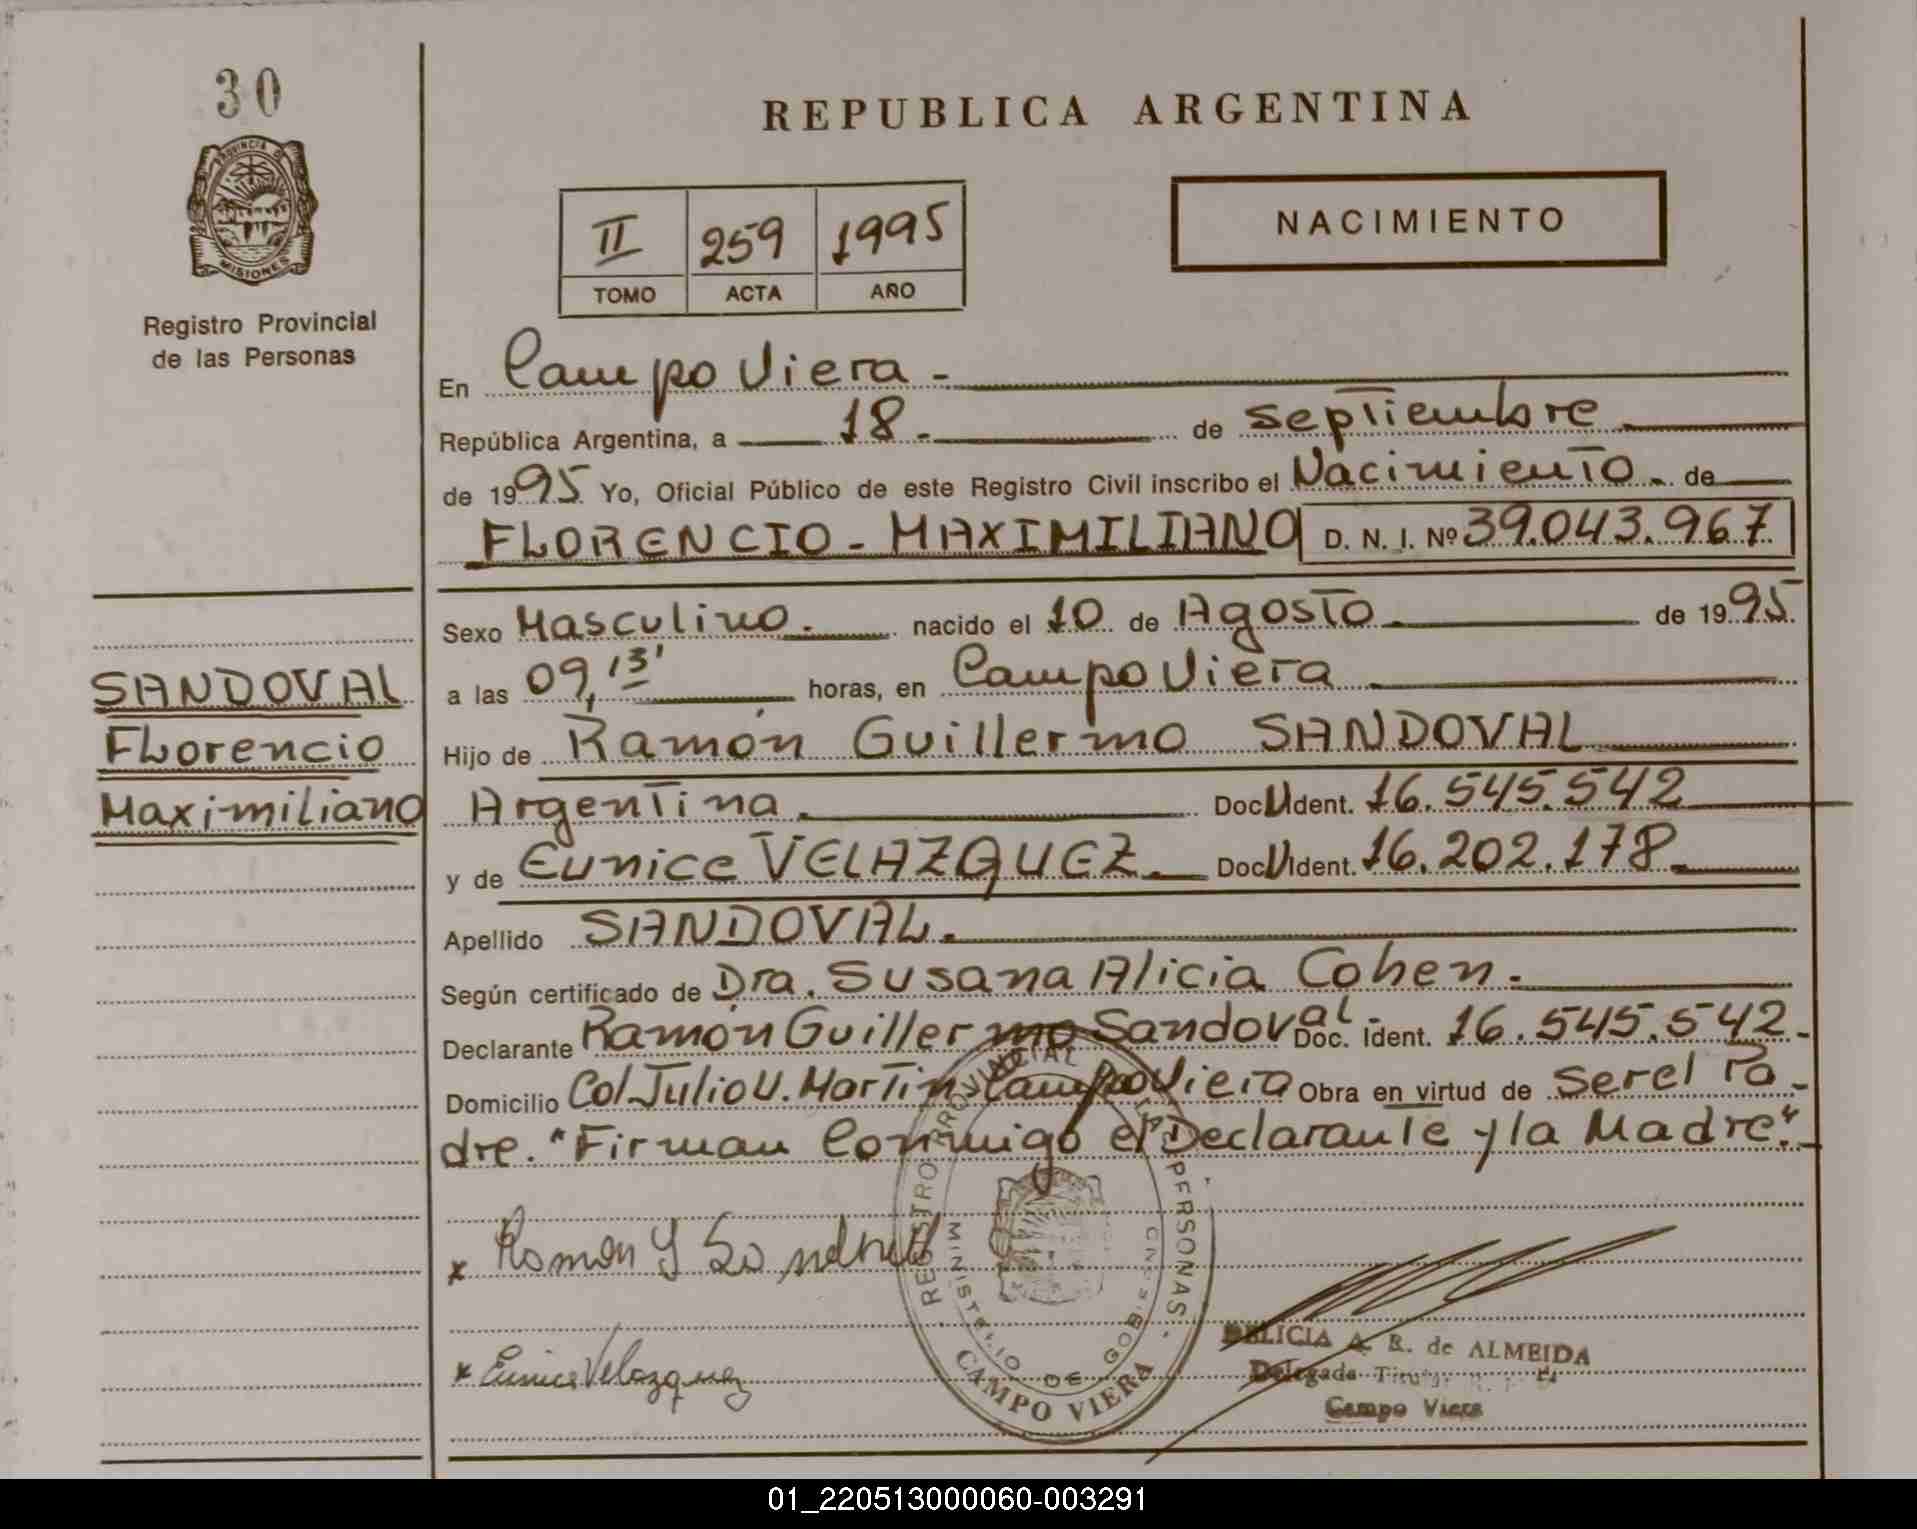 30
PROVINCIA DE
MISIONES
Registro Provincial
de las Personas
SANDOVAL
Florencio
Maximiliano
REPUBLICA ARGENTINA
II 259 1995
TOMO ACTA AÑO
NACIMIENTO
En Campo Viera.-
República Argentina, a 18.- de septiembre
de 1995 Yo, Oficial Público de este Registro Civil inscribo el Nacimiento.- de
FLORENCIO - MAXIMILIANO D. N. I. Nº 39.043.967
Sexo Masculino.- nacido el 10 de Agosto.- de 1995.
a las 09,13' horas, en Campo Viera
Hijo de Ramón Guillermo SANDOVAL
Argentina.- Doc U Ident. 16.545.542
y de Eunice VELAZQUEZ.- Doc U Ident. 16.202.178.-
Apellido SANDOVAL.-
Según certificado de Dra. Susana Alicia Cohen.-
Declarante Ramón Guillermo Sandoval Doc. Ident. 16.545.542.-
Domicilio Col Julio U. Martin Campo Viera Obra en virtud de ser el Pa-
dre. "Firman Conmigo el Declarante y la Madre".-
x Ramon G Sandoval
x Eunice Velazquez
REGISTRO PROVINCIAL DE LAS PERSONAS
MINISTERIO DE GOBIERNO
CAMPO VIERA
DELICIA A. R. de ALMEIDA
Delegada Titular
Campo Viera
01_220513000060-003291